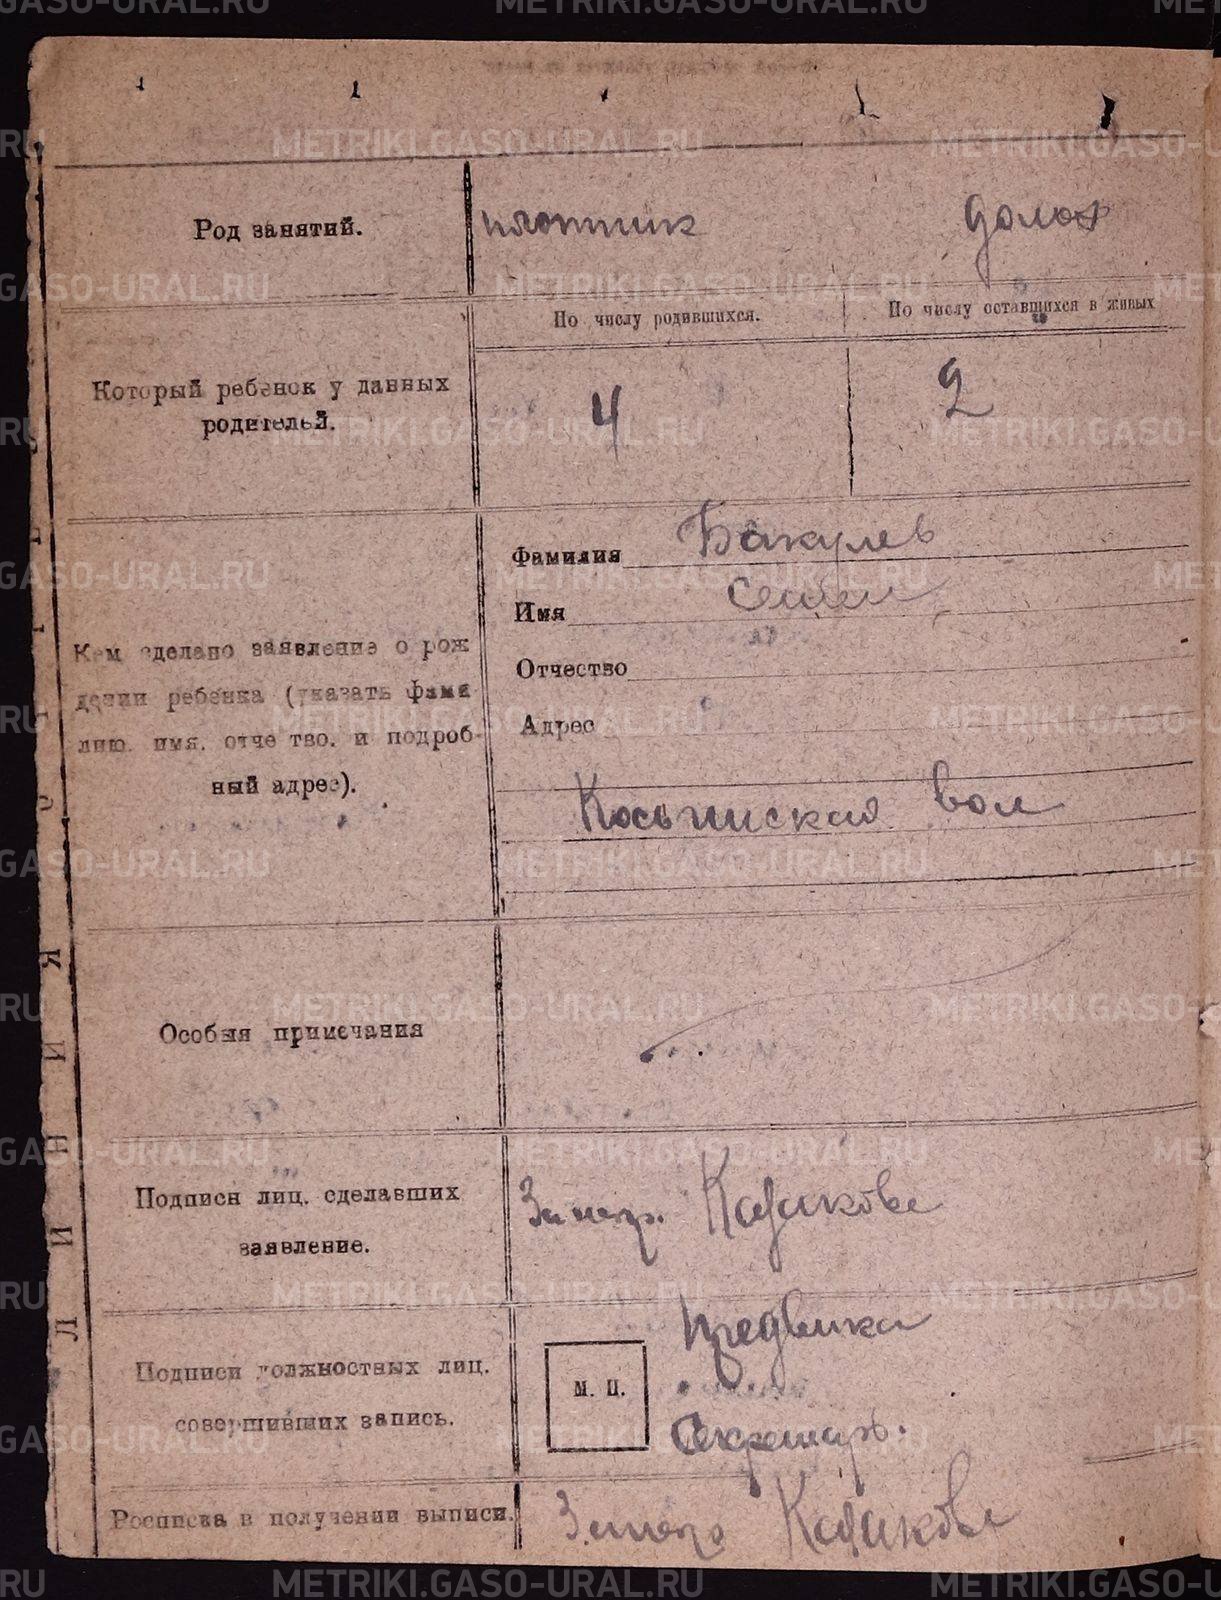 Род занятий.
плотник домох
По числу родившихся. По числу оставшихся в живых
Который ребенок у данных
родителей.
4 2
Фамилия Бакулев
Имя Семен
Отчество
Адрес
Кем сделано заявление о рож
дении ребенка (указать фами
лию. имя. отче тво. и подроб-
ный адрес).
Косьинская вол
Особыя примечания
Подписи лиц. сделавших
заявление.
За негр. Казаков
Подписи должностных лиц.
совершивших запись.
М. П.
Предвика
Секретарь.
Росписка в получении выписи.
За негр Казаков
ЛИНИЯ
METRIKI.GASO-URAL.RU